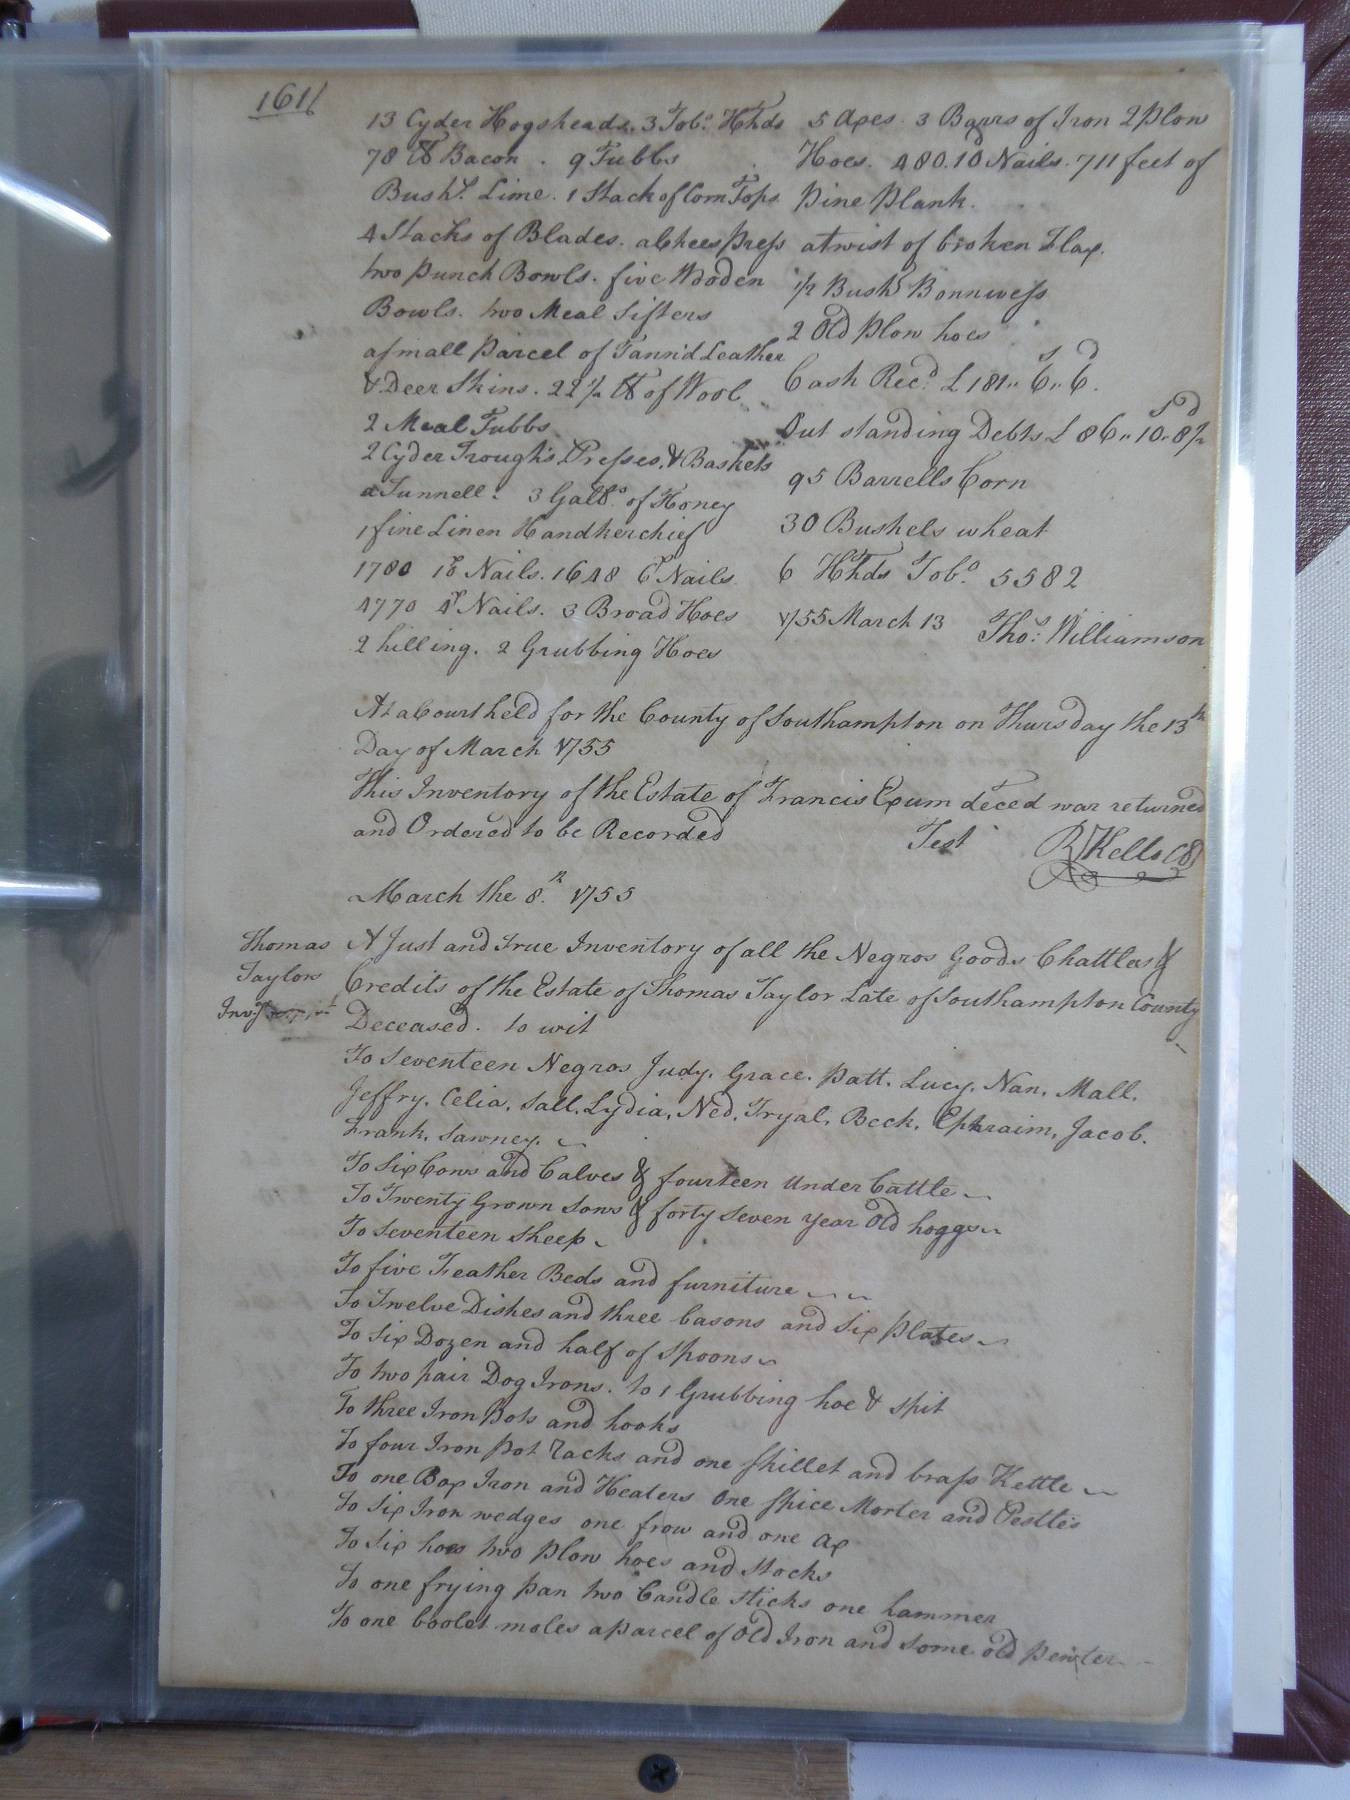 161
13 Cyder Hogsheads. 3 Tobo. Hhds
78 lb Bacon . 9 Tubbs
Bushs. Lime. 1 Stack of Corn Tops
4 Stacks of Blades. a Chees Press
two Punch Bowls. five Wooden
Bowls. two Meal Sifters
a small Parcel of Tann'd Leather
& Deer Skins. 22½ lb of Wool
2 Meal Tubbs
2 Cyder Troughs, Presses, & Baskets
a Tunnell. 3 Galls. of Honey
1 fine Linen Handkerchief
1780 10d Nails. 1648 6d Nails.
4770 4d Nails. 3 Broad Hoes
2 hilling. 2 Grubbing Hoes
5 Axes. 3 Barrs of Iron 2 Plow
Hoes. 480.10d Nails. 711 feet of
Pine Plank.
a twist of broken Flax.
½ Bushl Bonnwess
2 Old Plow hoes
Cash Recd. £ 181,, 6s,, 6d.
Out standing Debts £ 86,, 10s,, 8½d
95 Barrells Corn
30 Bushels wheat
6 Hhds Tobo. 5582
1755 March 13 Thos. Williamson
At a Court held for the County of Southampton on Thursday the 13th
Day of March 1755
This Inventory of the Estate of Francis Exum deced was returned
and Ordered to be Recorded Test R Kello
March the 8th. 1755
Thomas
Taylors
Invy
A Just and True Inventory of all the Negros Goods Chattles &
Credits of the Estate of Thomas Taylor Late of Southampton County
Deceased. to wit
To Seventeen Negros Judy. Grace. Patt. Lucy. Nan. Mall.
Jeffry. Celia. Sall. Lydia, Ned. Tryal. Beck. Ephraim, Jacob.
Frank. Sawney.
To Six Cows and Calves & fourteen Under Cattle
To Twenty Grown Sows & forty Seven year Old hoggs
To Seventeen Sheep
To five Feather Beds and furniture
To Twelve Dishes and three basons and Six plates
To Six Dozen and half of Spoons
To two pair Dog Irons. to 1 Grubbing hoe & spit
To three Iron Pots and hooks
To four Iron Pot racks and one Skillet and brass Kettle
To one Box Iron and Heaters One Spice Morter and Pestles
To Six Iron wedges one frow and one ax
To Six hoes two Plow hoes and Stocks
To one frying pan two Candle sticks one hammer
To one boolet moles a parcel of Old Iron and Some old pewter